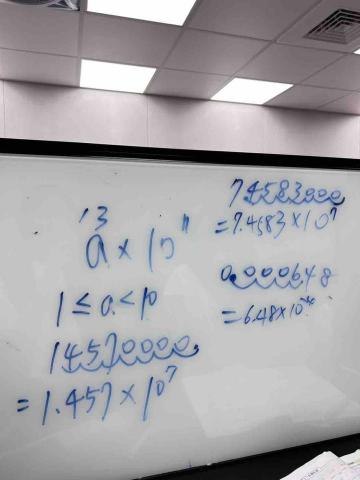 a × 10ⁿ
1 ≤ a < 10
14570000.
= 1.457 × 10⁷
74583000
= 7.4583 × 10⁷
0.0006.48
= 6.48 × 10⁻⁴